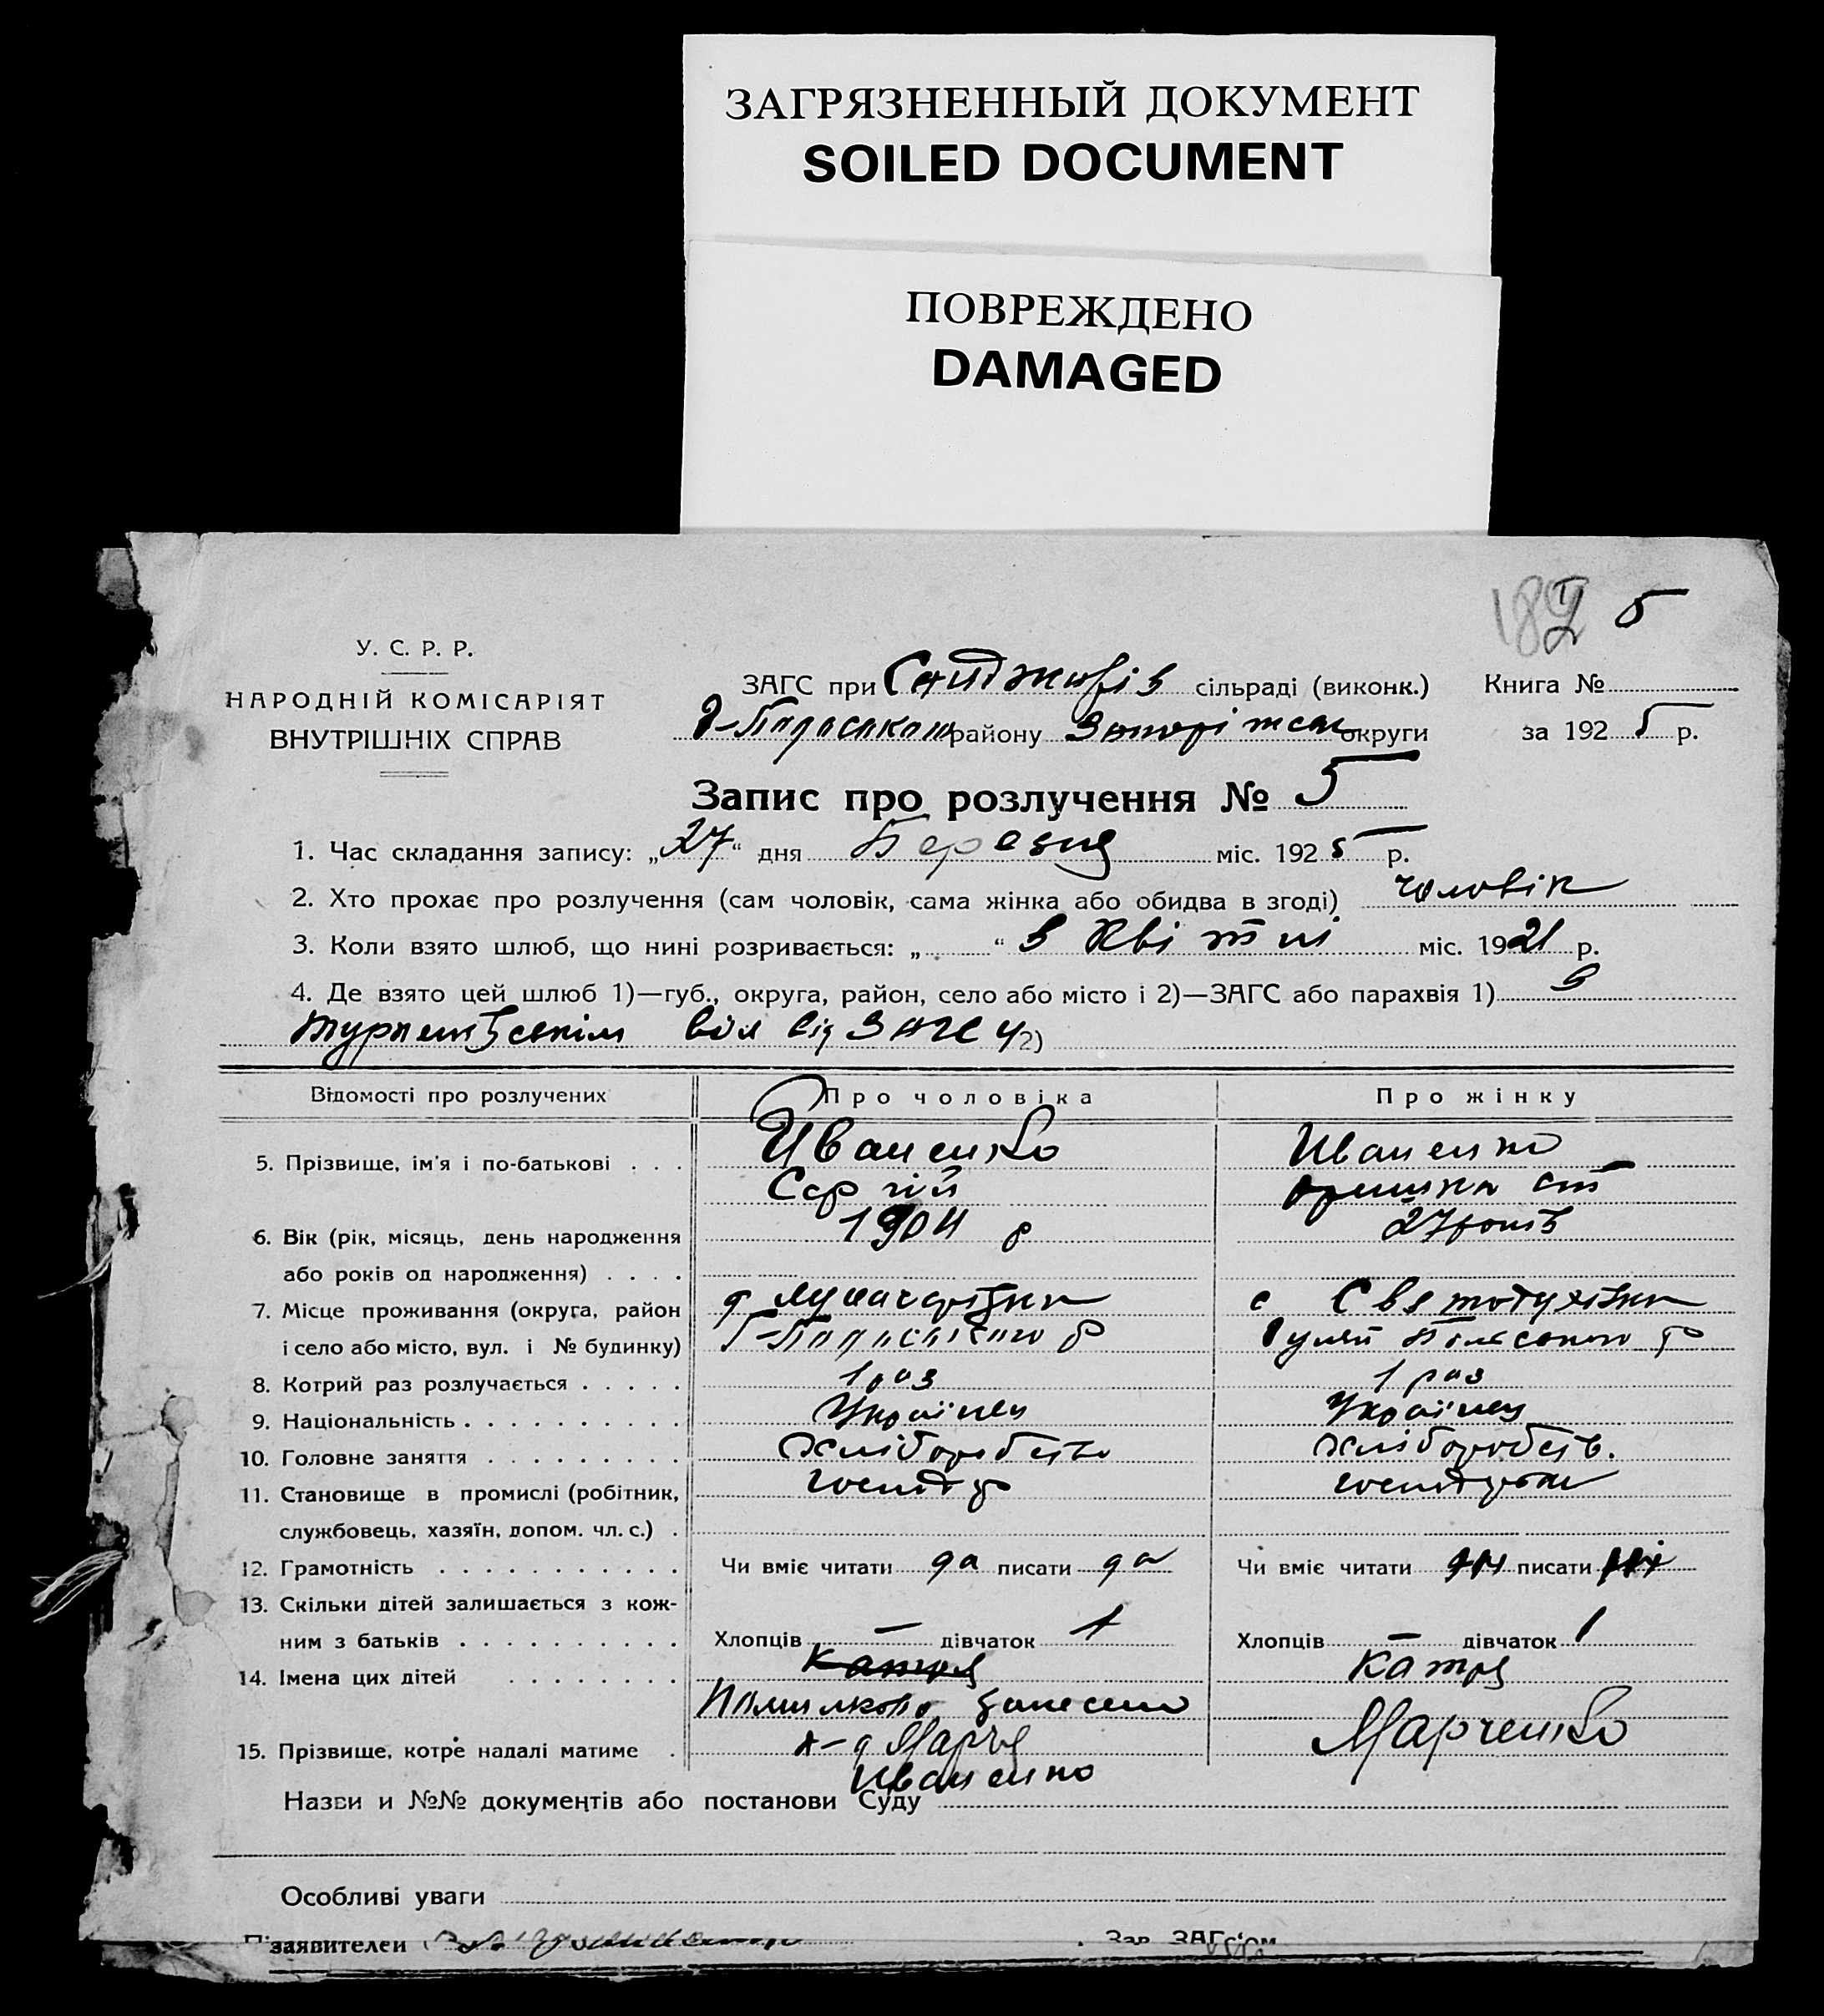 ЗАГРЯЗНЕННЫЙ ДОКУМЕНТ
SOILED DOCUMENT
ПОВРЕЖДЕНО
DAMAGED
5
У. С. Р. Р.
НАРОДНІЙ КОМІСАРІЯТ
ВНУТРІШНІХ СПРАВ
ЗАГС при сільраді (виконк.) Книга №
району округи за 1925 р.
Запис про розлучення № 5
1. Час складання запису: „27“ дня Березня міс. 1925 р.
2. Хто прохає про розлучення (сам чоловік, сама жінка або обидва в згоді) чоловік
3. Коли взято шлюб, що нині розривається: „ “ в Квітні міс. 1921 р.
4. Де взято цей шлюб 1)—губ., округа, район, село або місто і 2)—ЗАГС або парахвія 1) в
2)
Відомості про розлучених Про чоловіка Про жінку
5. Прізвище, ім'я і по-батькові . . . Иваненко Иваненко
Сергій
6. Вік (рік, місяць, день народження 1904 р 27 років
або років од народження) . . . .
7. Місце проживання (округа, район с
і село або місто, вул. і № будинку)
8. Котрий раз розлучається . . . . . 1 раз 1 раз
9. Національність . . . . . . . . . . Українец Українец
10. Головне заняття . . . . . . . . . Хліборобств Хліборобств.
11. Становище в промислі (робітник, господар
службовець, хазяїн, допом. чл. с.) .
12. Грамотність . . . . . . . . . . . Чи вміє читати да писати да Чи вміє читати писати
13. Скільки дітей залишається з кож-
ним з батьків . . . . . . . . . . Хлопців — дівчаток 1 Хлопців — дівчаток 1
14. Імена цих дітей . . . . . . . . Катря Катря
Помилково занесено
15. Прізвище, котре надалі матиме . Марченко
Иваненко
Назви и №№ документів або постанови Суду
Особливі уваги
заявителей Зав. ЗАГс'ом